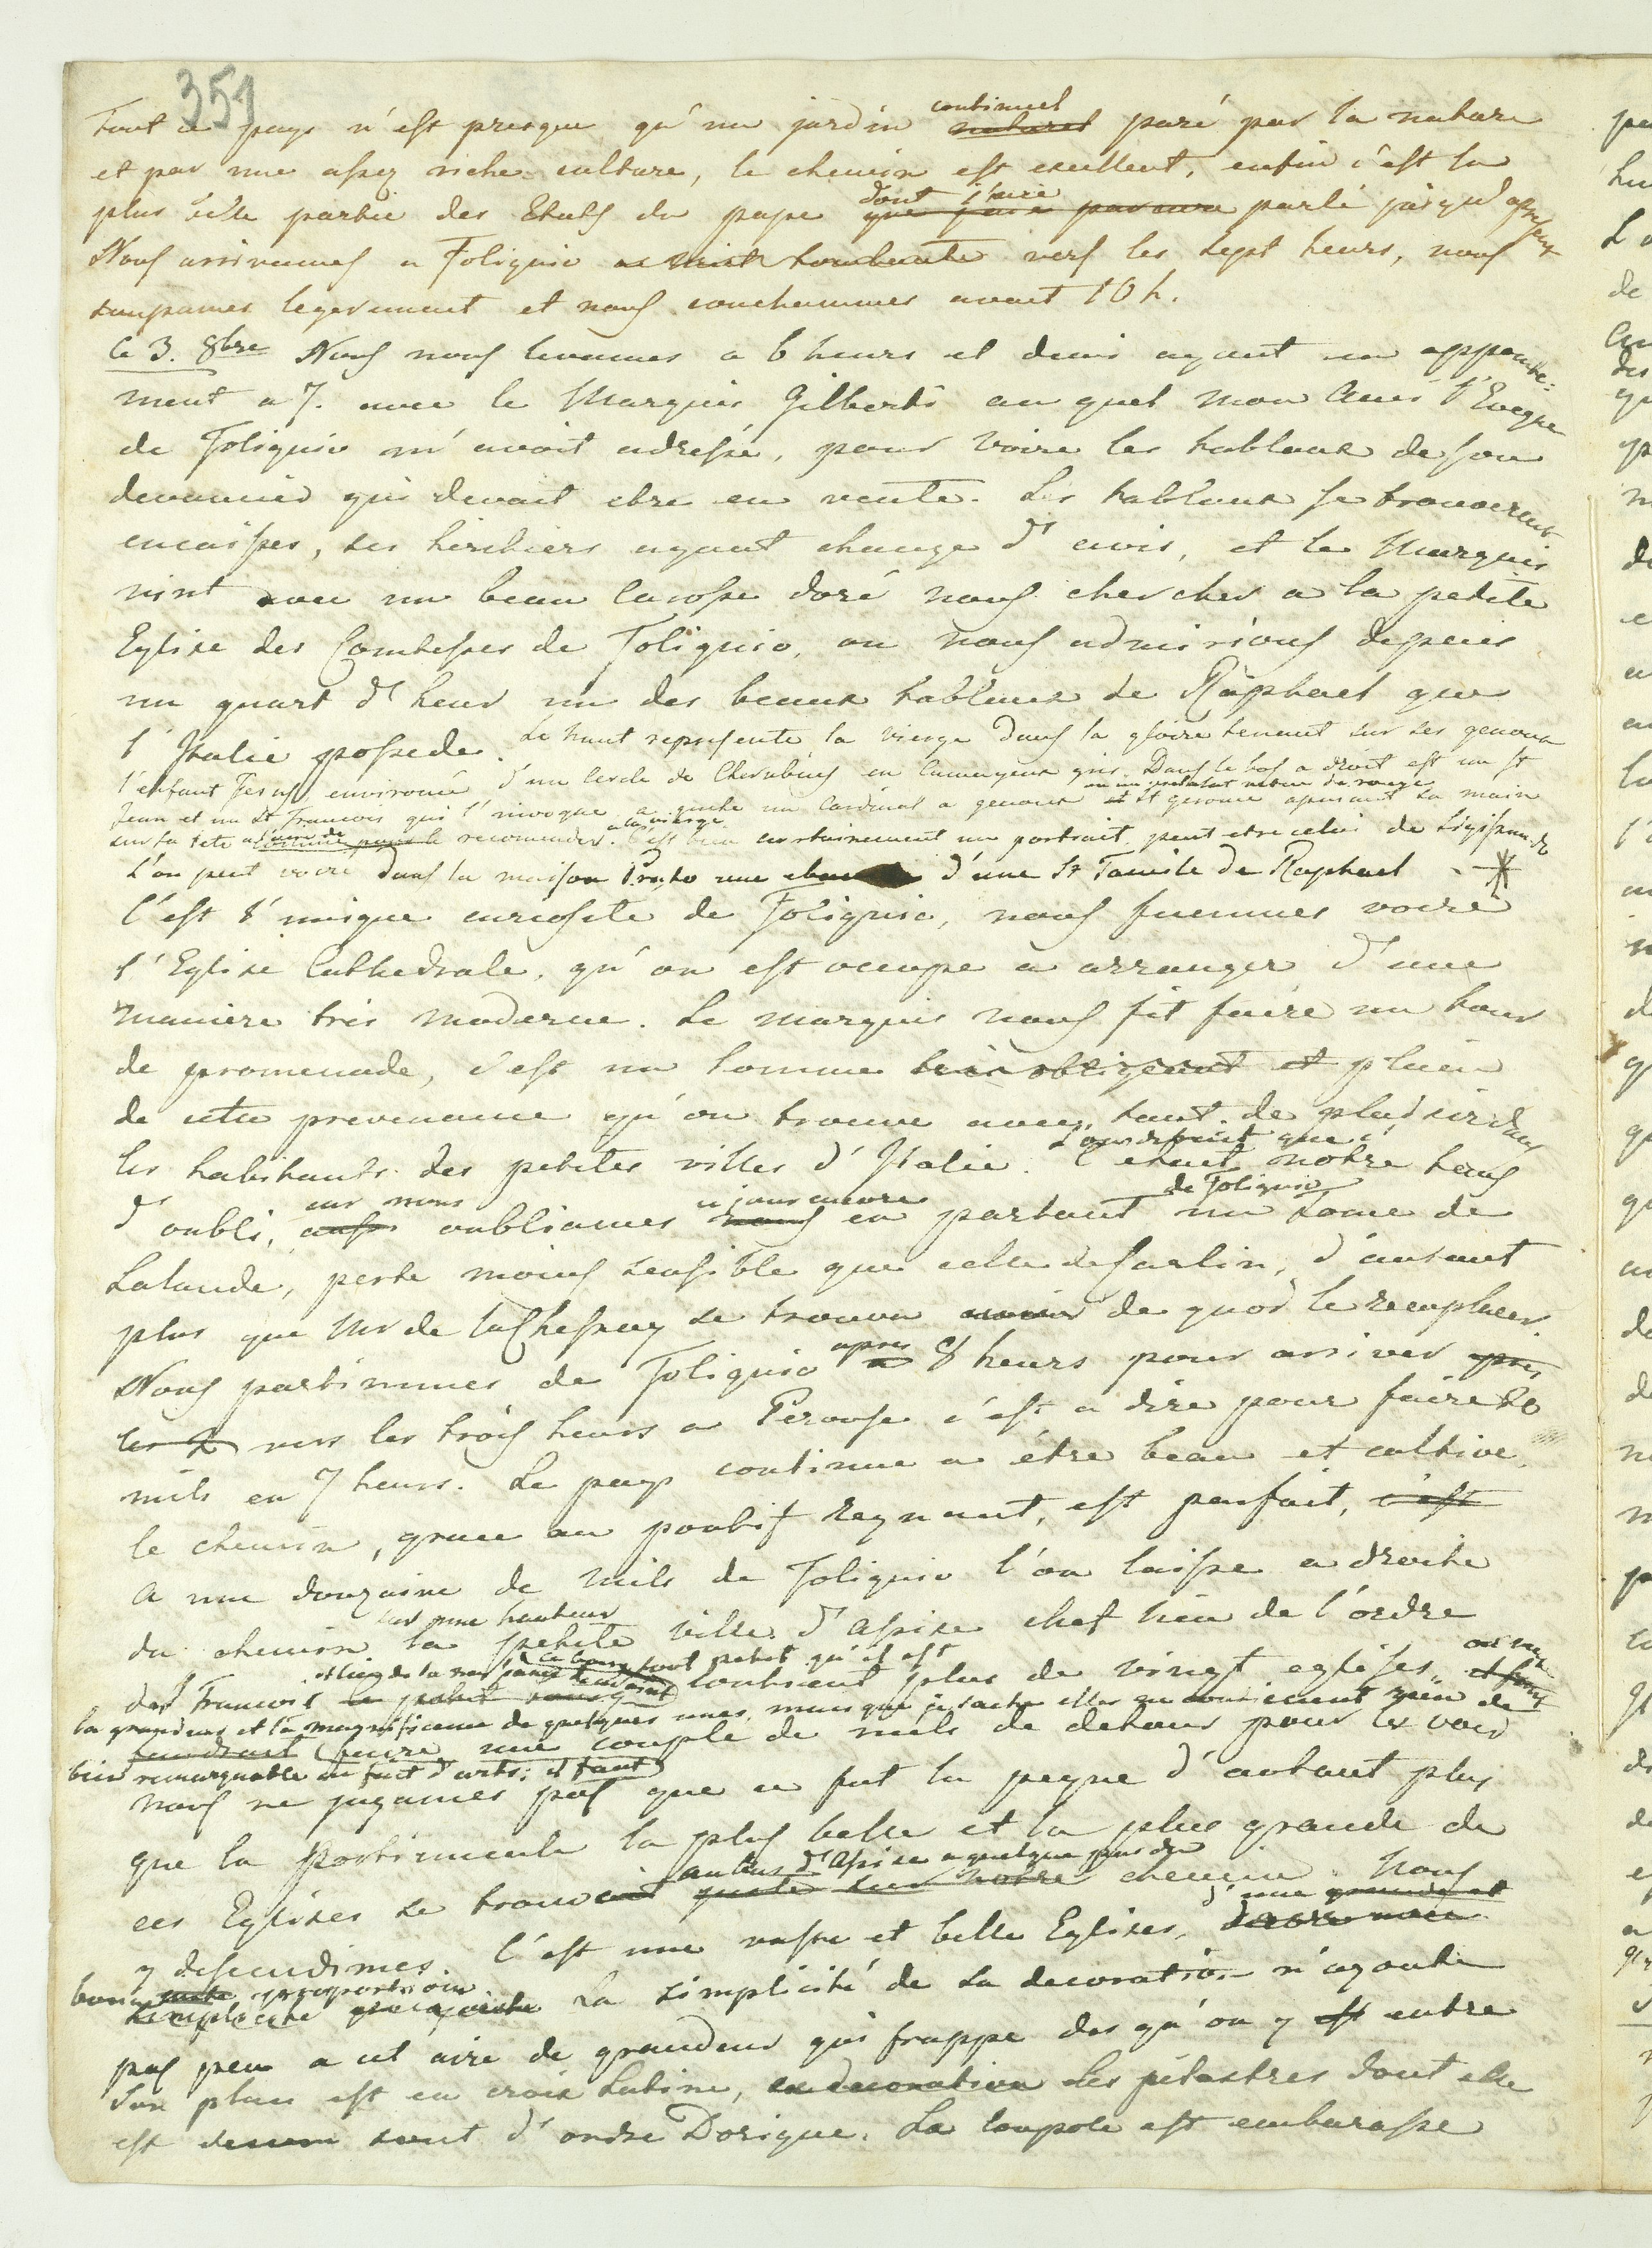 351
continuel
Tout ce pays n'est presque qu'un jardin naturel paré par la nature
et par une assez riche culture, le chemin est exellent, enfin c'est la
dont j'aie
plus belle partie des Etats du pape que j'aie parcouru parlé jusqu'a present
Nous arrivames a Foligno a nuit tombante vers les sept heurs, nous
soupames legerement et nous couchammes avant 10 h.
Ce 3. 8bre Nous nous levames a 6 heurs et demi ayant un appointe=
ment a 7. avec le Marquis Gilberti au quel mon Ami l'Eveque
de Foligno m'avoit adressé, pour voire les tableaux de son
devancier qui devait etre en vente. Les tableaux se trouverent
encaisses, ses heritiers ayant change d'avis, et le Marquis
vint avec un beau Carosse doré nous chercher a la petite
Eglise des Comtesses de Foligno, ou nous admirions depuis
un quart d'heur un des beaux tableaux de Raphael que
l'Italie possede. Le haut represente la vierge dans la gloire tenant sur ses genoux
l'enfant Jesus, environné d'un Cercle de Cherubins en Camayeux gris. Dans le bas a droit est un St
Jean et un St Francois qui l'invoque a gauche un Cardinal a genoux et St gerome aposant sa main
a la vierge
sur la tete pour le recomender. C'est bien certainement un portrait, peut etre celui de Sigismondo
L'on peut voire dans la maison Prato une d'une Ste Famile de Raphael
C'est l'unique curiosite de Foligno, nous fuemmes voire
l'Eglise Cathedrale, qu'on est occupe a arranger d'une
maniere très moderne. Le marquis nous fit faire un tour
de promenade, c'est un homme très obligeant et plein
de cette prevenance qu'on trouve avec tant de plaisir dans
les habitants des petites villes d'Italie. C'etait notre tems
de Foligno
d'oubli, car nous oubliames nous en partant un tome de
Lalande, perte moins sensible que celle de Carlin, d'autant
plus que Mr de la Chesnay se trouva avoir de quoi le remplacer.
apres
Nous partimmes de Foligno a 8 heurs pour arriver
vers les trois heurs a Perouse c'est a dire pour faire 20
mils en 7 heurs. Le pays continue a être beau et cultive,
le chemin, grace au pontif regnant, est parfait, c'est
A une douzaine de mils de Foligno l'on laisse a droite
sur une hauteur
du chemin la petite ville d'Assise chef lieu de l'ordre
tout petit qu'il est
de St Francois contient plus de vingt eglises,
la grandeur et la magnificence de quelques unes, mais que je sache elles ne contiennent rien de
faudrait faire une couple de mils de detour pour les voir
bien remarquable en fait d'arts; il faut
nous ne jugames pas que ce fut la peyne d'autant plus
que la Portiuncule la plus belle et la plus grande de
au bas d'Assise a quelque pas du
ces Eglises se trouvait juste sur notre chemin. Nous
d'une grande et
y descendimes. C'est une vaste et belle Eglise,
bonne proportion
simplicité La simplicité de sa decoration n'ajoute
pas peu a cet aire de grandeur qui frappe des qu'on y est entre
Son plan est en croix Latine, sa decoration Les pilastres dont elle
est sont d'ordre Dorique. La coupole est embarasse